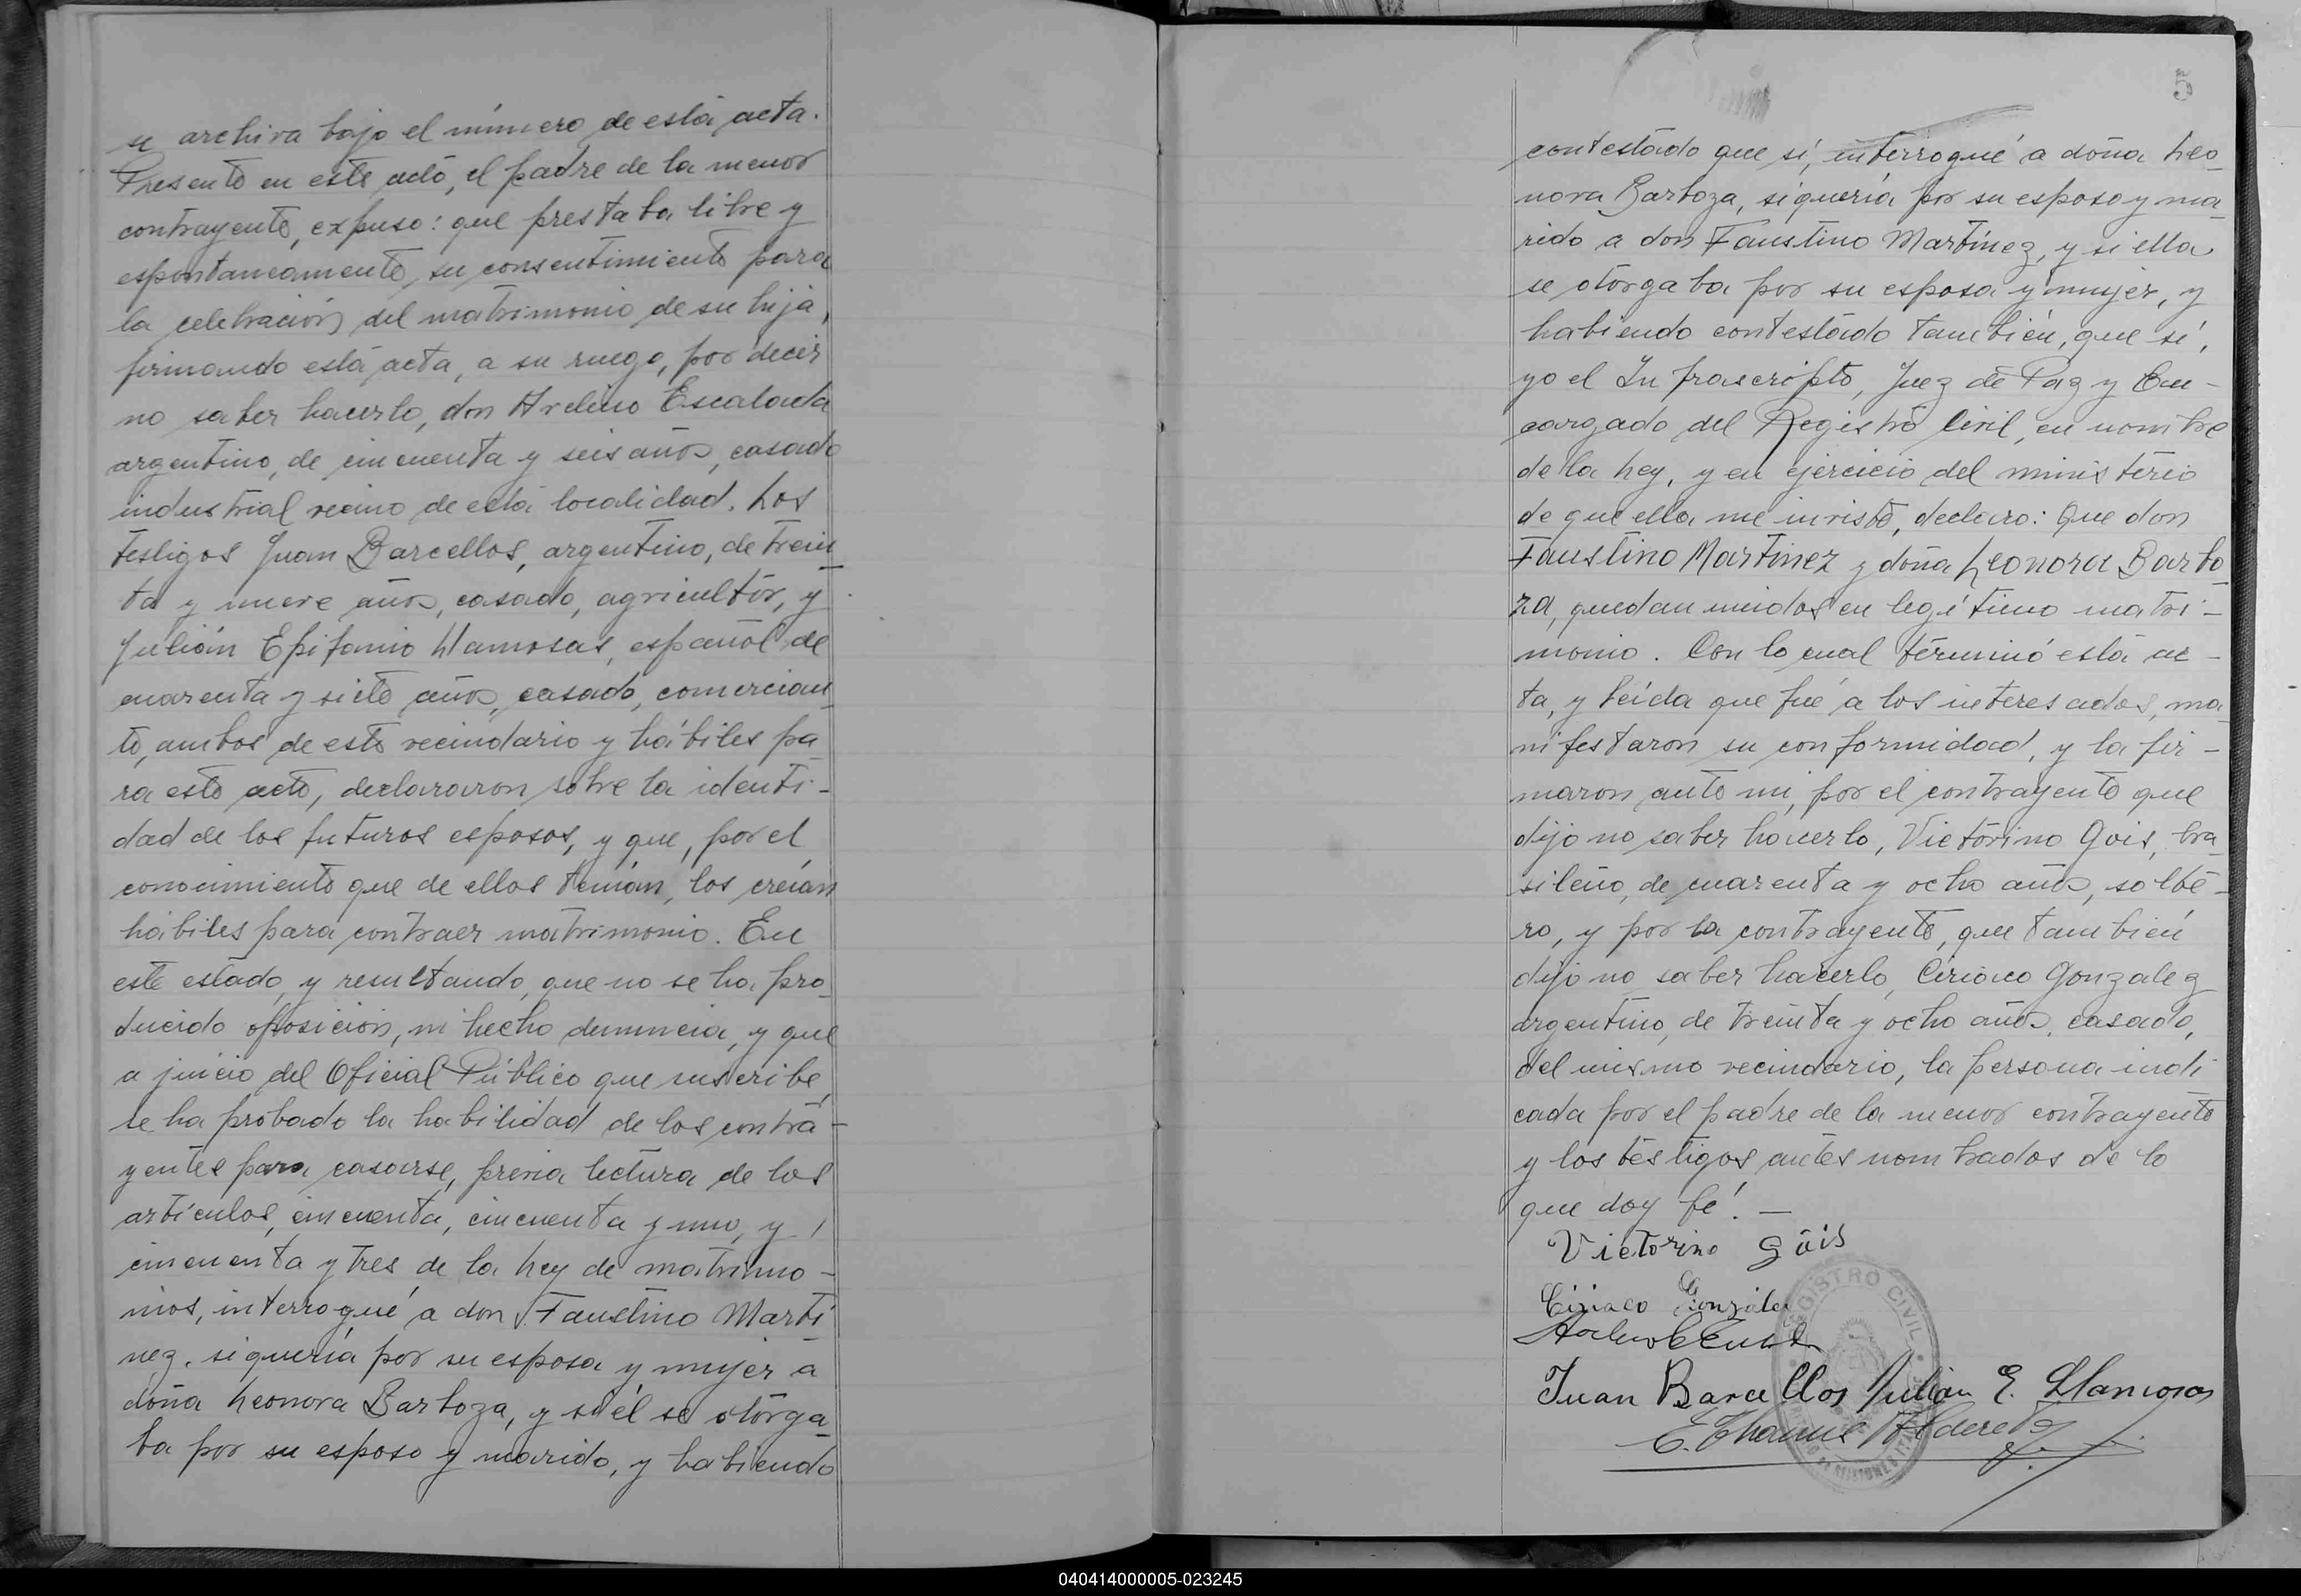 se archiva bajo el número de está acta.
Presente en este acto, el padre de la menor
contrayente, expuso: que prestaba libre y
espontaneamente, su consentimiento para
la celebración del matrimonio de su hija,
firmando está acta, a su ruego, por decir
no saber hacerlo, don Avelino Escalada
argentino, de cincuenta y seis años, casado
industrial vecino de está localidad. Los
testigos Juan Barcellos, argentino, de trein-
ta y nueve años, casado, agricultor, y
Julián Epifanio Llamosas, español de
cuarenta y siete años, casado, comercian-
te, ambos de este vecindario y hábiles pa
ra este acto, declararon sobre la identi-
dad de los futuros esposos, y que, por el
conocimiento que de ellos tenían, los creían
hábiles para contraer matrimonio. En
este estado, y resultando, que no se ha pro-
ducido oposición, ni hecho denuncia, y que
a juicio del Oficial Público que suscribe,
se ha probado la habilidad de los contra-
yentes para casarse, previa lectura de los
artículos, cincuenta, cincuenta y uno, y
cincuenta y tres de la Ley de matrimo-
nios, interrogué a don Faustino Martí-
nez, si quería por su esposa y mujer a
doña Leonora Barboza, y si él se otorga-
ba por su esposo y marido, y habiendo
5
contestado que sí, interrogué a doña Leo-
nora Barboza, si quería por su esposo y ma-
rido a don Faustino Martínez, y si ella
se otorgaba por su esposa y mujer, y
habiendo contestado también, que sí,
yo el Infrascripto, Juez de Paz y En-
cargado del Registro Civil, en nombre
de la Ley, y en ejercicio del ministerio
de que ella me inviste, declaro: Que don
Faustino Martinez y doña Leonora Barbo-
za, quedan unidos en legítimo matri-
monio. Con lo cual terminó está ac-
ta, y leída que fué a los interesados, ma-
nifestaron su conformidad, y la fir-
maron ante mi, por el contrayente que
dijo no saber hacerlo, Victorino Gois, bra-
sileño, de cuarenta y ocho años, solte-
ro, y por la contrayente, que también
dijo no saber hacerlo, Ciriaco Gonzalez
argentino, de treinta y ocho años, casado,
del mismo vecindario, la persona indi
cada por el padre de la menor contrayente
y los testigos antes nombrados de lo
que doy fé!. —
Victorino Góis
Ciriaco González
Juan Barcellos Julián E. Llamosas
REGISTRO CIVIL
040414000005-023245